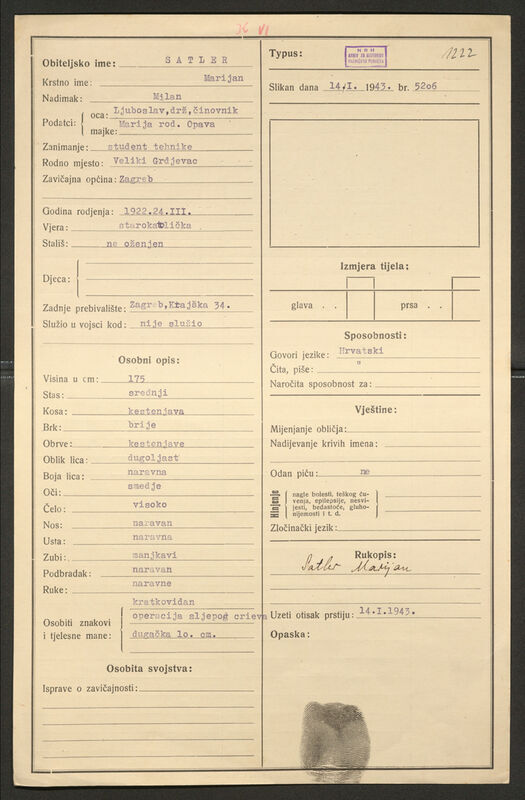 36 VI
Obiteljsko ime: SATLER
Krstno ime: Marijan
Nadimak: Milan
Podatci: oca: Ljuboslav,drž,činovnik
majke: Marija rod. Opava
Zanimanje: student tehnike
Rodno mjesto: Veliki Grdjevac
Zavičajna općina: Zagreb
Godina rodjenja: 1922.24.III.
Vjera: starokatolička
Stališ: ne oženjen
Djeca:
Zadnje prebivalište: Zagreb,Krajška 34.
Služio u vojsci kod: nije služio
Osobni opis:
Visina u cm: 175
Stas: srednji
Kosa: kestenjava
Brk: brije
Obrve: kestenjave
Oblik lica: dugoljast
Boja lica: naravna
Oči: smedje
Čelo: visoko
Nos: naravan
Usta: naravna
Zubi: manjkavi
Podbradak: naravan
Ruke: naravne
kratkovidan
Osobiti znakovi operacija sljepog crieva
i tjelesne mane: dugačka lo. cm.
Osobita svojstva:
Isprave o zavičajnosti:
Typus:
NRH
1222
Slikan dana 14.I. 1943. br. 52o6
Izmjera tijela:
glava . . prsa . .
Sposobnosti:
Govori jezike: Hrvatski
Čita, piše: "
Naročita sposobnost za:
Vještine:
Mijenjanje obličja:
Nadijevanje krivih imena:
Odan piću: ne
Hinjenje
nagle bolesti, teškog ču-
venja, epilepsije, nesvi-
jesti, bedastoće, gluho-
nijemosti i t. d.
Zločinački jezik:
Rukopis:
Satler Marijan
Uzeti otisak prstiju: 14.I.1943.
Opaska: